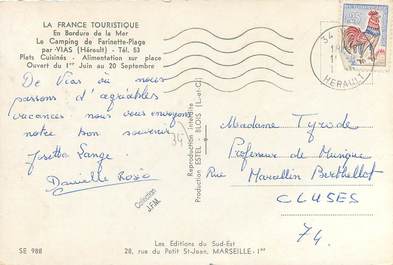 LA FRANCE TOURISTIQUE
En Bordure de la Mer
Le Camping de Farinette-Plage
par VIAS (Hérault) - Tél. 53
Plats Cuisinés - Alimentation sur place
Ouvert du 1er Juin au 20 Septembre
De Vias où nous
passons d'agréables
vacances nous vous envoyons
notre bon souvenir
Josetta Lange.
Danielle
34
Collection
J.F.M.
Reproduction interdite
Production ESTEL - BLOIS (L.-et-C.)
34
HERAULT
Madame Tyrode
Professeur de Musique
Rue Marcellin Berthellot
CLUSES
74.
SE 988
Les Editions du Sud-Est
28, rue du Petit St-Jean, MARSEILLE-1er